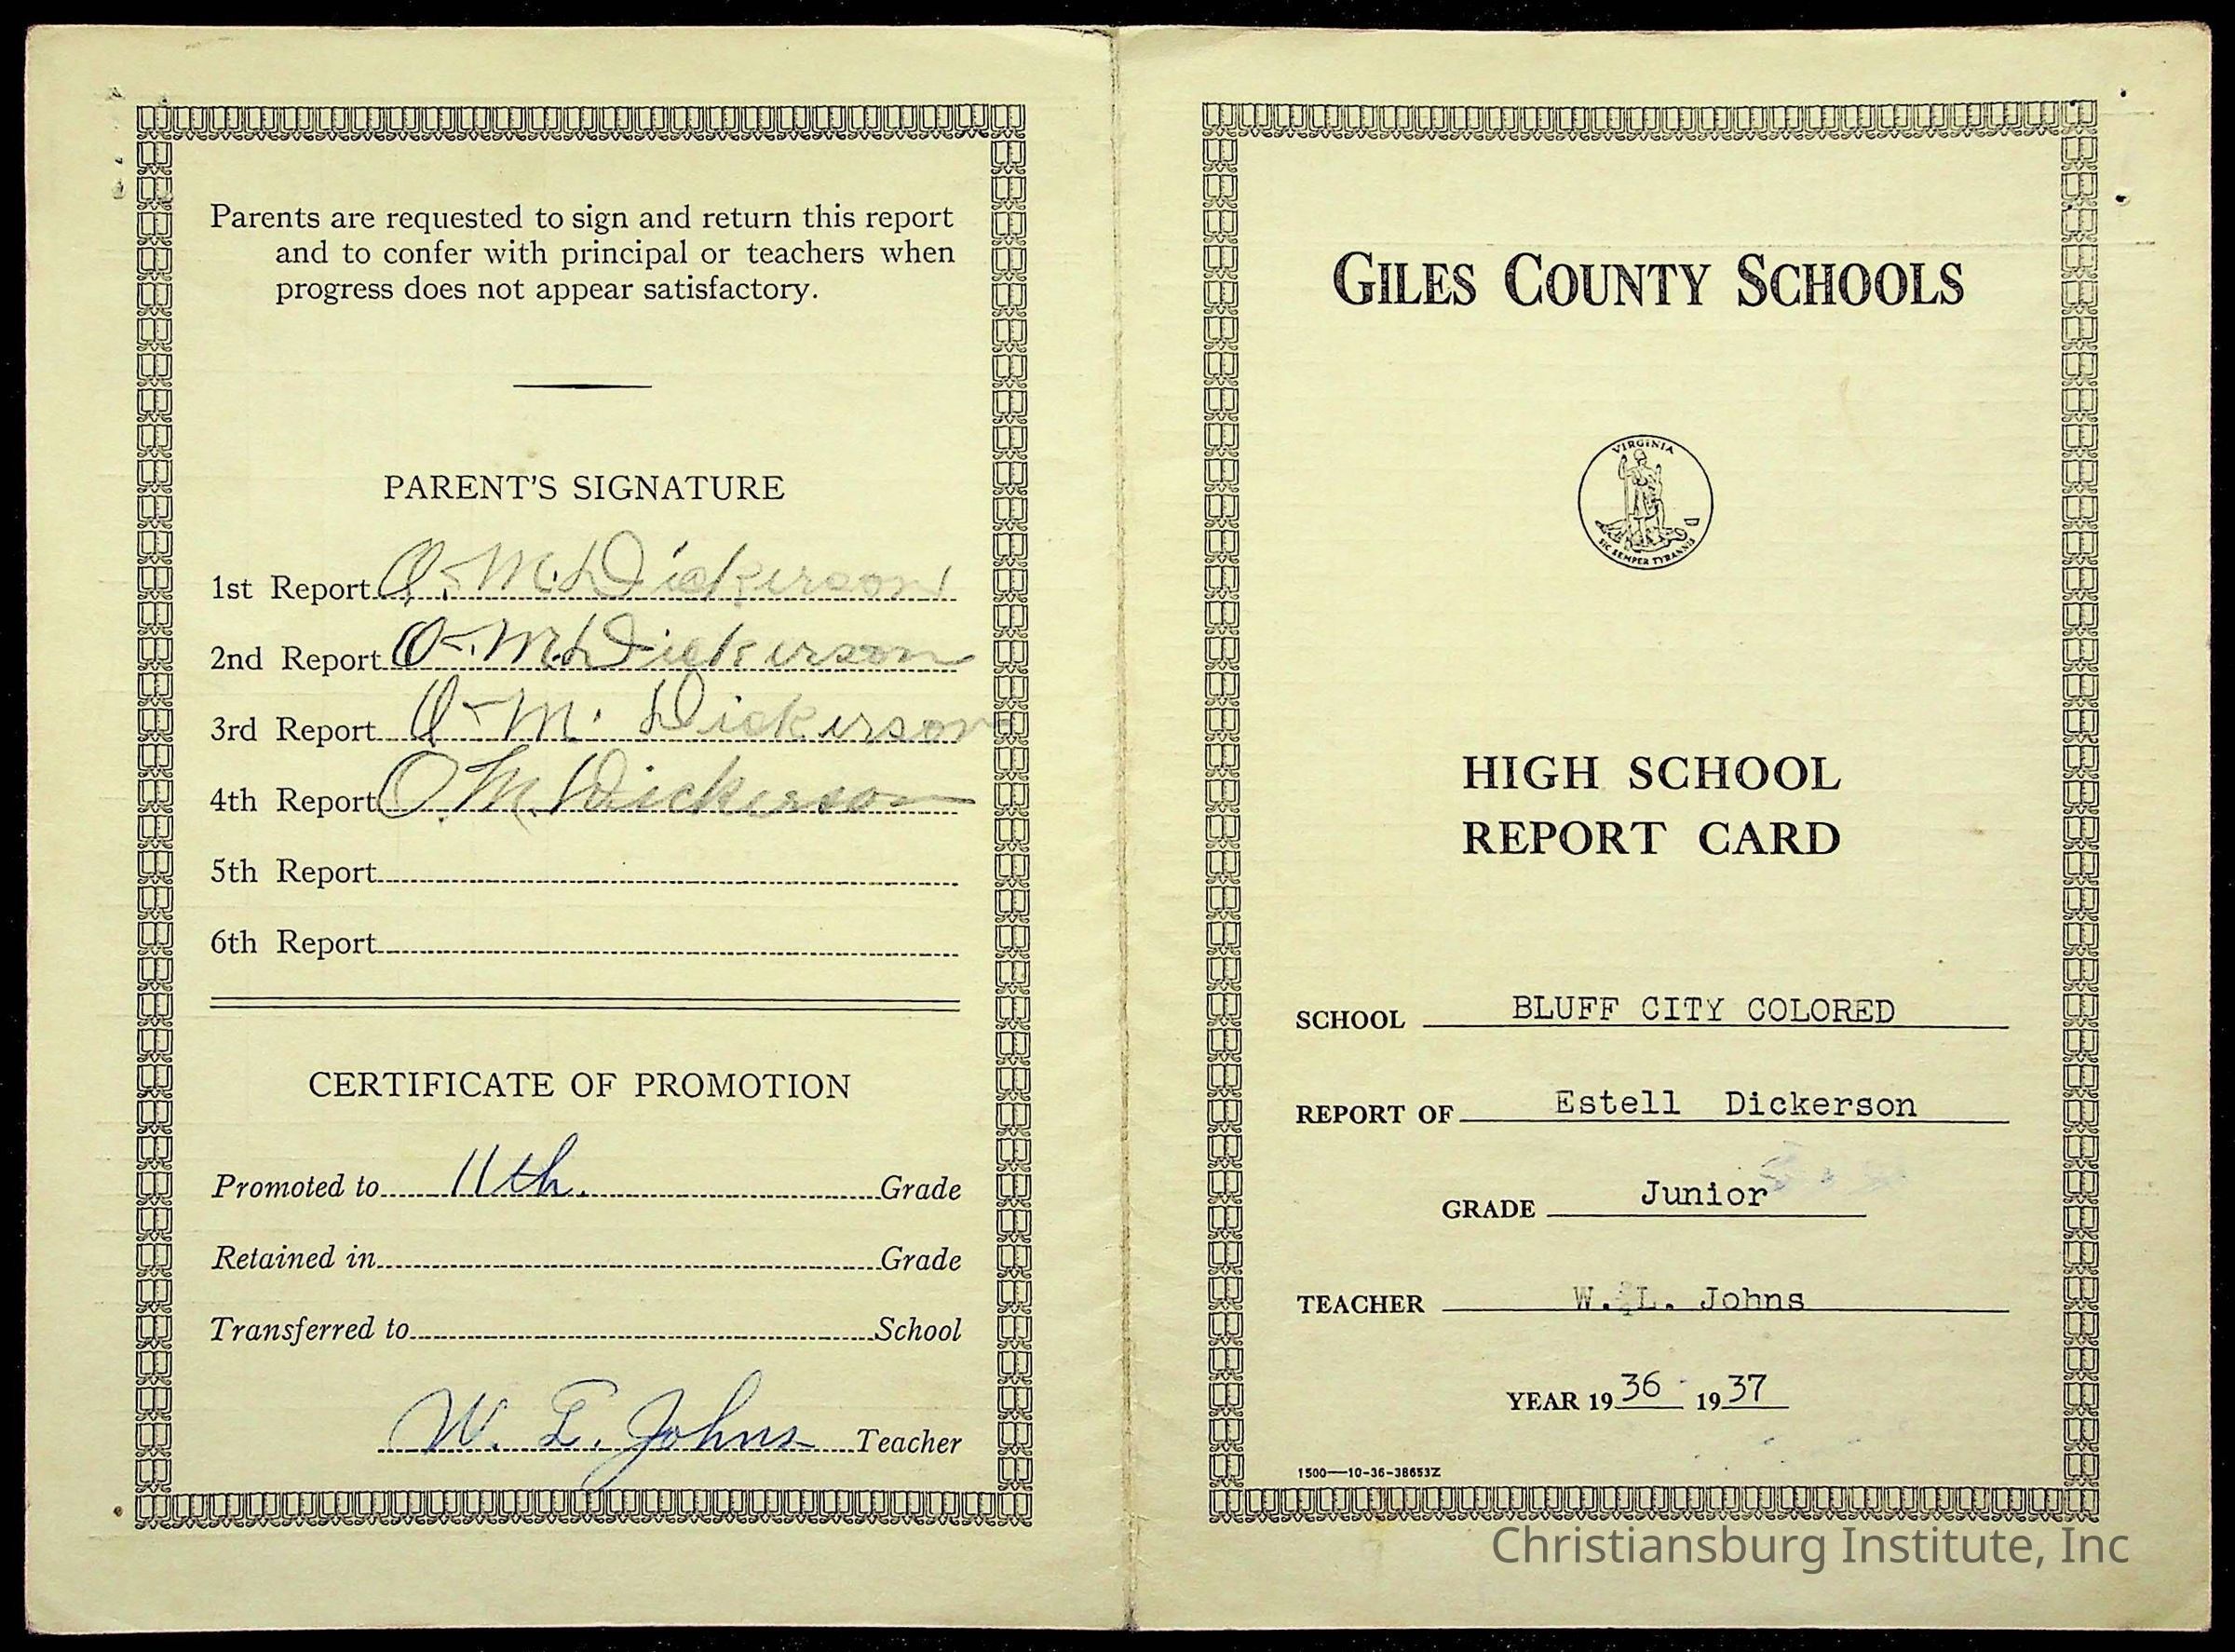 Parents are requested to sign and return this report
and to confer with principal or teachers when
progress does not appear satisfactory.
PARENT'S SIGNATURE
1st Report O. M. Dickerson
2nd Report O. M. Dickerson
3rd Report O. M. Dickerson
4th Report O. M. Dickerson
5th Report
6th Report
CERTIFICATE OF PROMOTION
Promoted to 11th. Grade
Retained in Grade
Transferred to School
W. L. Johns Teacher
GILES COUNTY SCHOOLS
VIRGINIA
SIC SEMPER TYRANNIS
HIGH SCHOOL
REPORT CARD
SCHOOL BLUFF CITY COLORED
REPORT OF Estell Dickerson
GRADE Junior
TEACHER W. L. Johns
YEAR 1936 - 1937
1500—10-36-38653Z
Christiansburg Institute, Inc